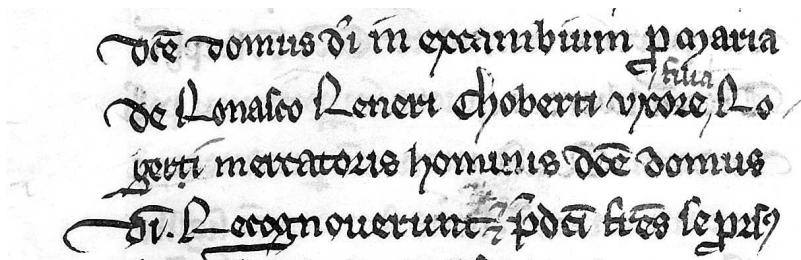 dcē domus dı̄ in excambium ꝑ Maria
de Ronasco Reneri Choberti uxore, Ro
gerti mercatoris hominis dcē domus
dı̄. Recognoverunt ⁊ p̄dcı̄ fr̄es se